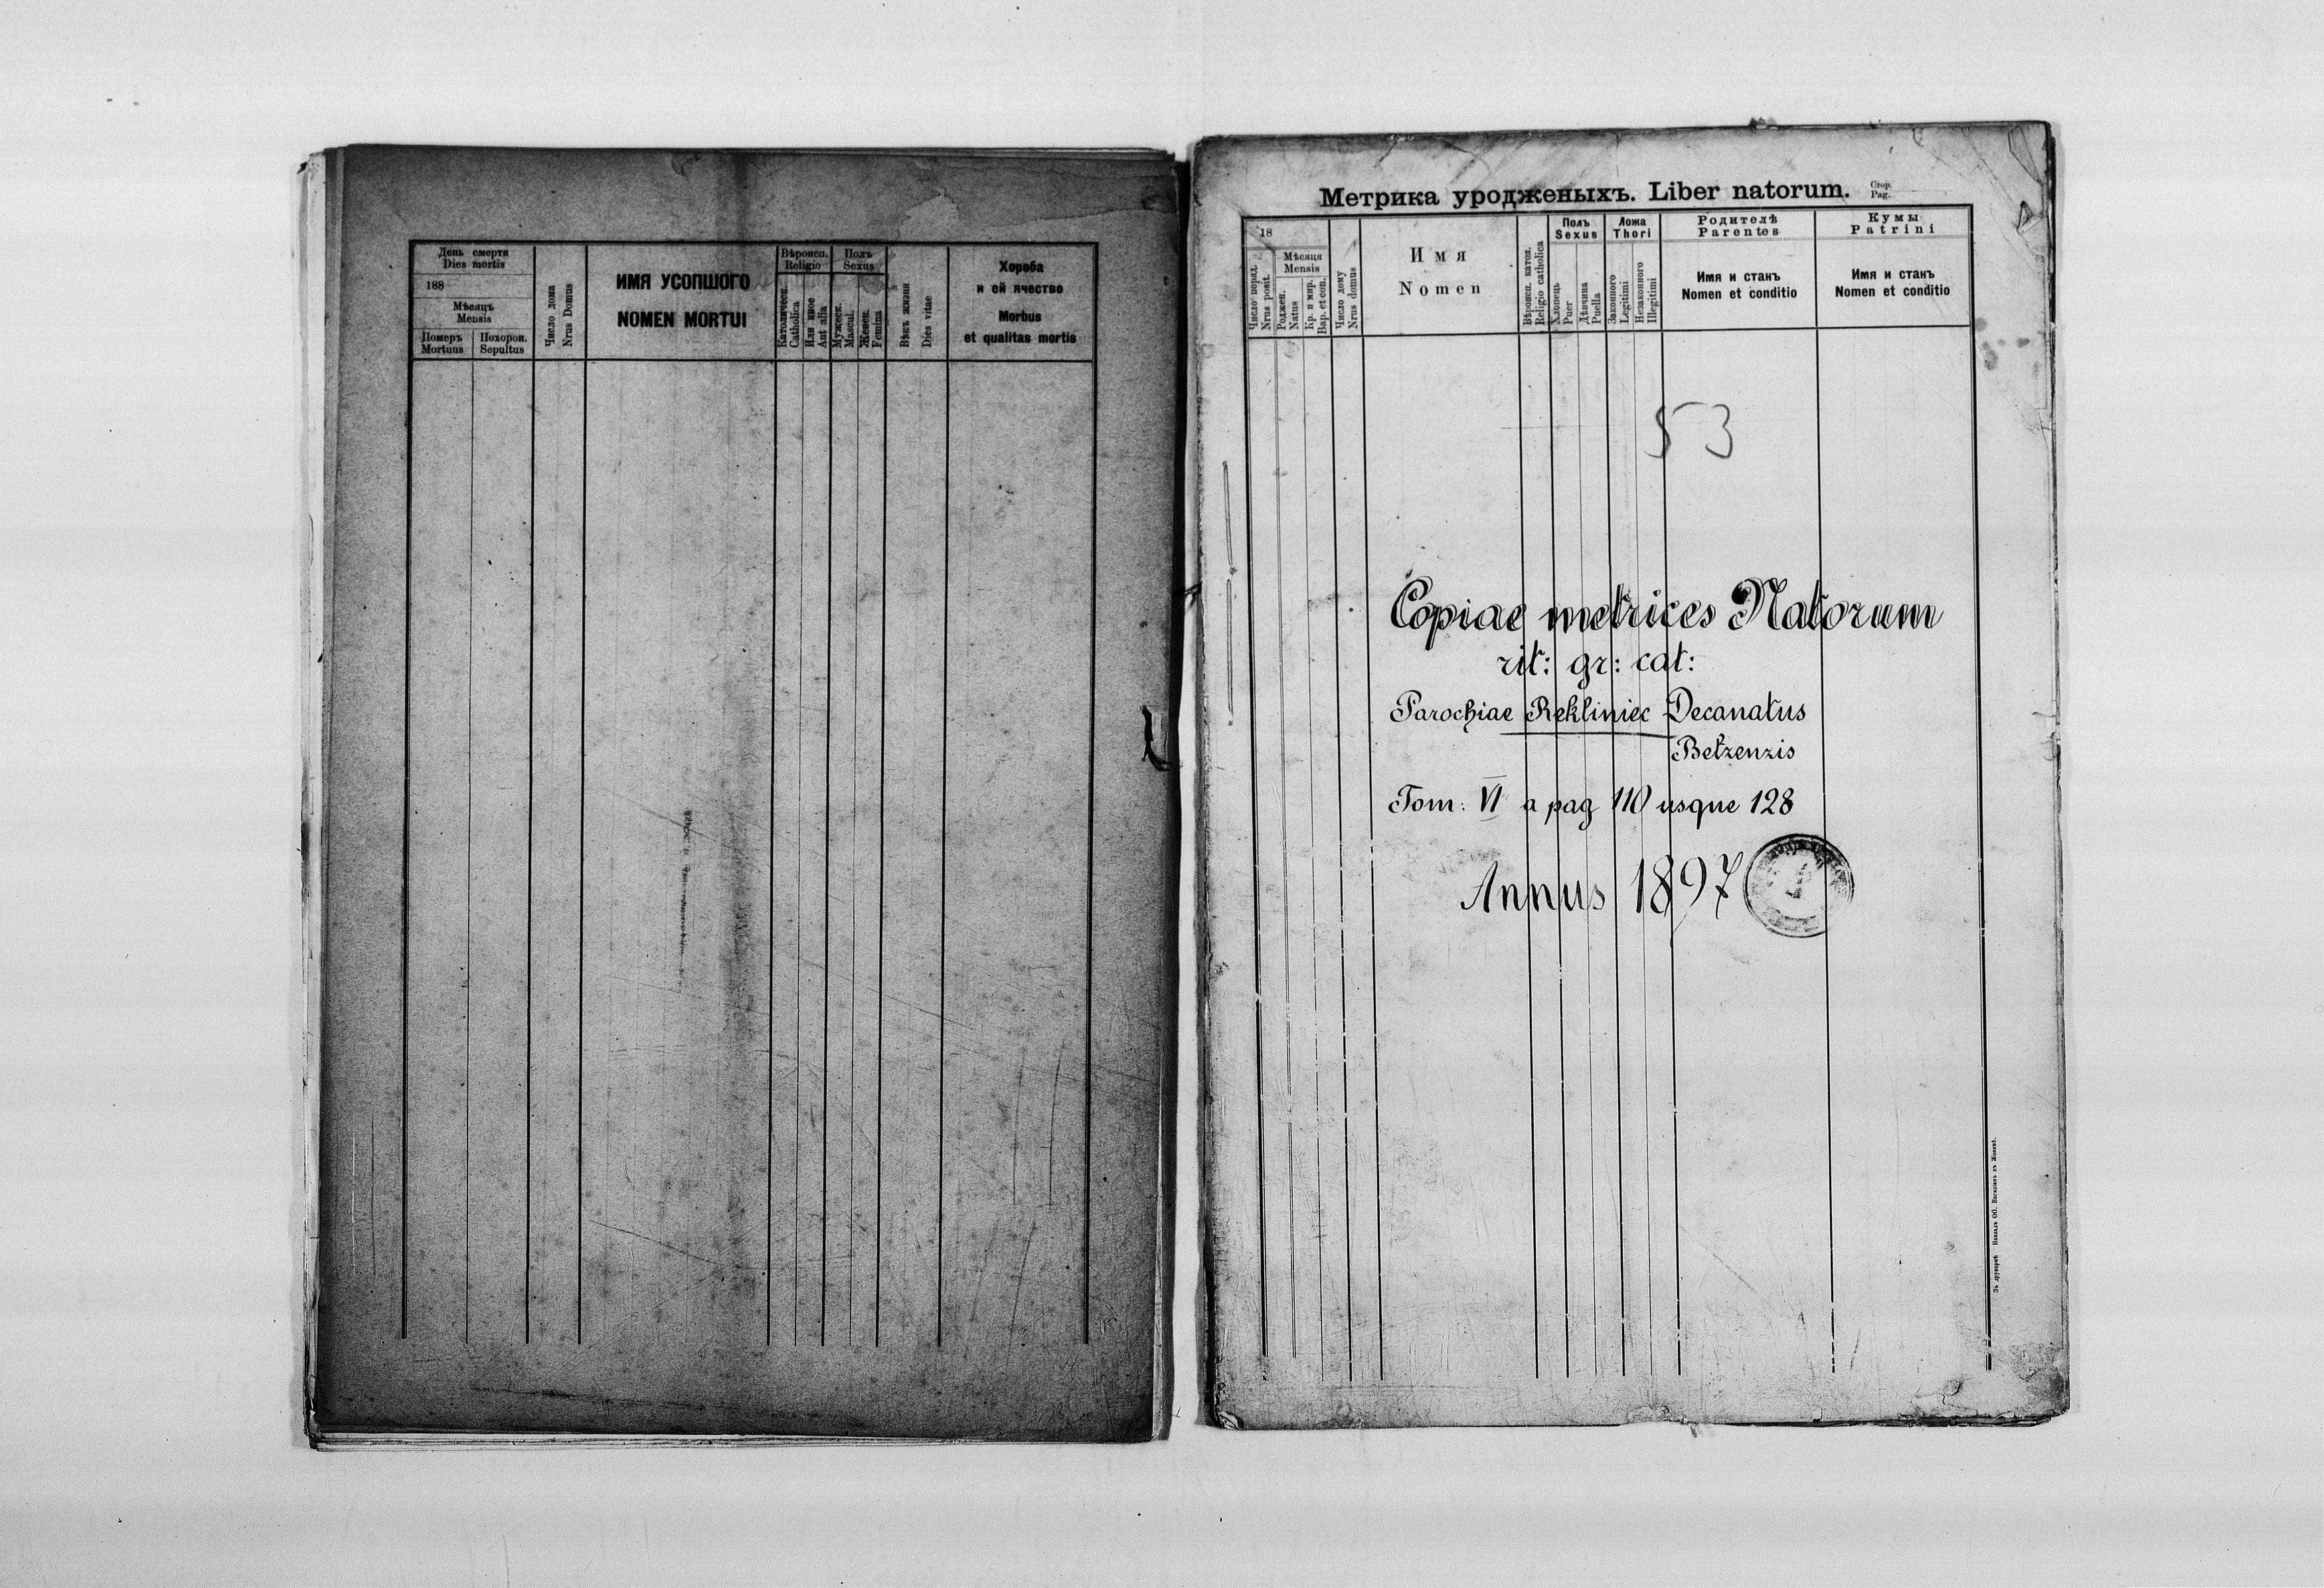 День смерти
Dies mortis
188
Мѣсяцъ
Mensis
Померъ
Mortuus
Похорон.
Sepultus
Число дома
Nrus Domus
ИМЯ УСОПШОГО
NOMEN MORTUI
Вѣроисп.
Religio
Католическ.
Catholica
Или иное
Aut alia
Полъ
Sexus
Мужеск.
Mascul.
Женск.
Femina
Вѣкъ жизни
Dies vitae
Хороба
и ей ячество
Morbus
et qualitas mortis
Метрика уродженыхъ. Liber natorum.
Стор.
Pag.
18
Число поряд.
Nrus posit.
Мѣсяця
Mensis
Роджен.
Natus
Кр. и мир.
Bap. et con.
Число дому
Nrus domus
Имя
Nomen
Вѣроисп. катол.
Religio catholica
Полъ
Sexus
Хлопець
Puer
Дѣвчина
Puella
Ложа
Thori
Законного
Legitimi
Незаконного
Illegitimi
Родителѣ
Parentes
Имя и станъ
Nomen et conditio
Кумы
Patrini
Имя и станъ
Nomen et conditio
53
Copiae metrices Natorum
rit: gr: cat:
Parochiae Rekliniec Decanatus
Betzenzis
Tom: VI a pag 110 usque 128
Annus 1897